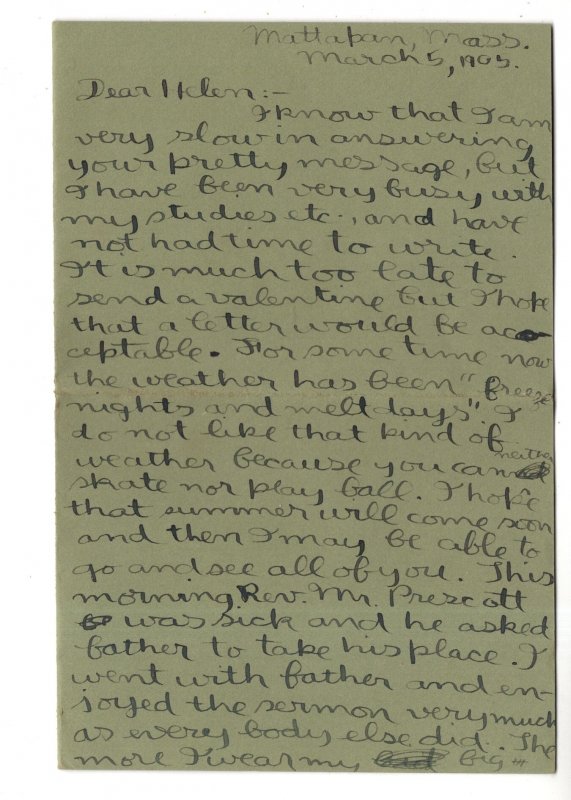 Mattapan, Mass.
March 5, 1905.
Dear Helen:-
I know that I am
very slow in answering
your pretty message, but
I have been very busy with
my studies etc., and have
not had time to write.
It is much too late to
send a valentine but I hope
that a letter would be ac-
ceptable. For some time now
the weather has been "freeze
nights and melt days". I
do not like that kind of
weather because you can neither
skate nor play ball. I hope
that summer will come soon
and then I may be able to
go and see all of you. This
morning Rev. Mr. Prescott
was sick and he asked
father to take his place. I
went with father and en-
joyed the sermon very much
as every body else did. The
more I wear my big